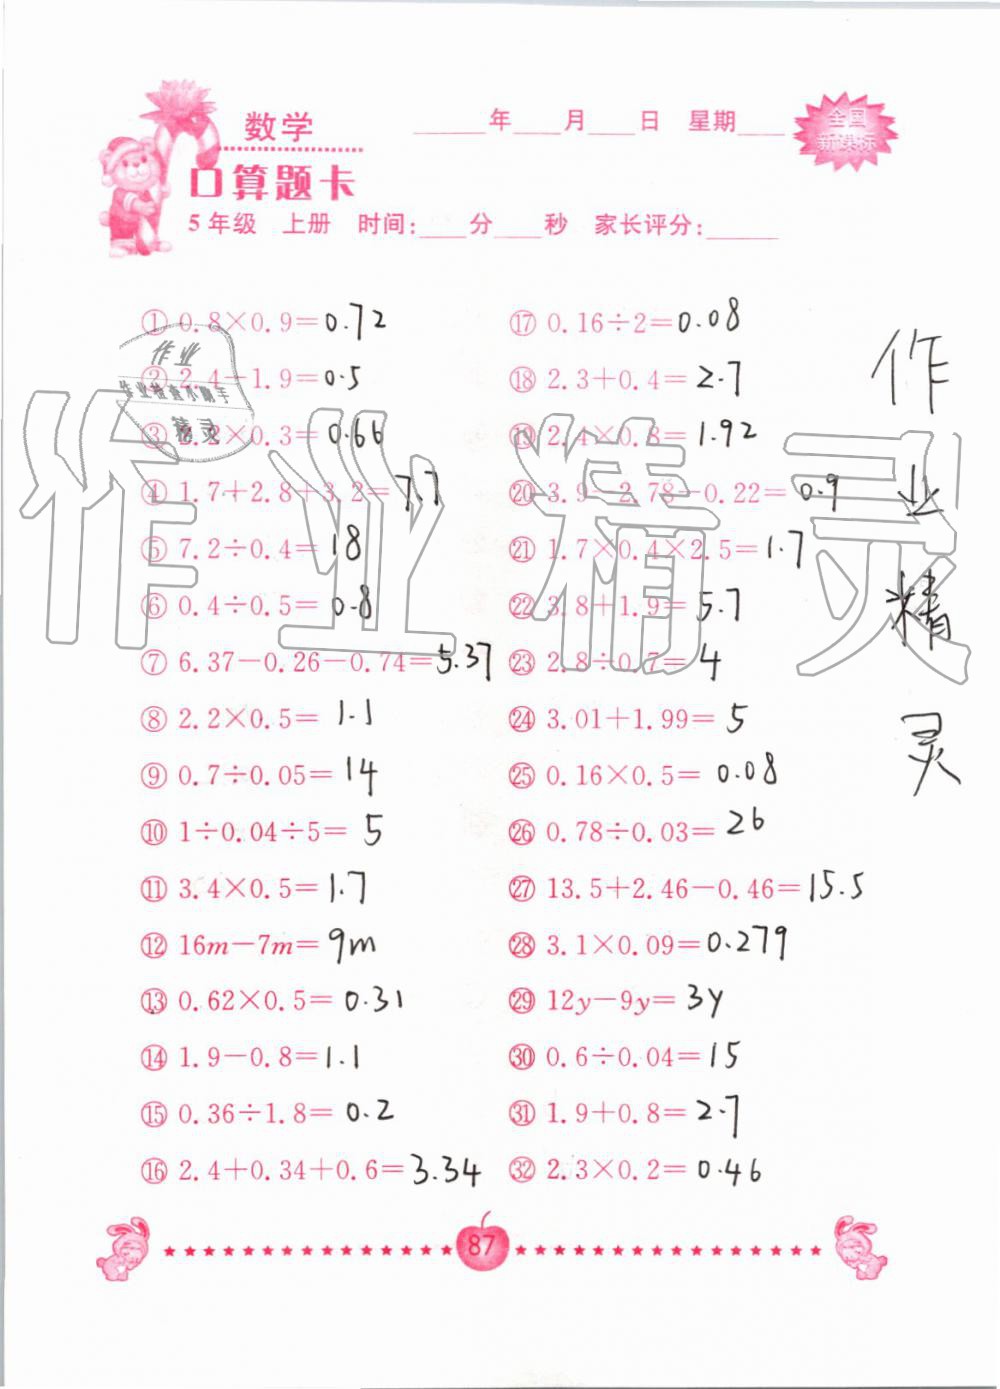 数学
____年___月___日 星期___
全国
新课标
口算题卡
5年级 上册 时间:___分___秒 家长评分:____
① 0.8×0.9=0.72
⑰ 0.16÷2=0.08
作业
② 2.4-1.9=0.5
⑱ 2.3+0.4=2.7
作业检查小助手
精灵
③ 2.2×0.3=0.66
⑲ 2.4×0.8=1.92
④ 1.7+2.8+3.2=7.7
⑳ 3.9-2.78-0.22=0.9
⑤ 7.2÷0.4=18
㉑ 1.7×0.4×2.5=1.7
⑥ 0.4÷0.5=0.8
㉒ 3.8+1.9=5.7
⑦ 6.37-0.26-0.74=5.37
㉓ 2.8÷0.7=4
⑧ 2.2×0.5=1.1
㉔ 3.01+1.99=5
⑨ 0.7÷0.05=14
㉕ 0.16×0.5=0.08
⑩ 1÷0.04÷5=5
㉖ 0.78÷0.03=26
⑪ 3.4×0.5=1.7
㉗ 13.5+2.46-0.46=15.5
⑫ 16m-7m=9m
㉘ 3.1×0.09=0.279
⑬ 0.62×0.5=0.31
㉙ 12y-9y=3y
⑭ 1.9-0.8=1.1
㉚ 0.6÷0.04=15
⑮ 0.36÷1.8=0.2
㉛ 1.9+0.8=2.7
⑯ 2.4+0.34+0.6=3.34
㉜ 2.3×0.2=0.46
作业精灵
作
业
精
灵
87